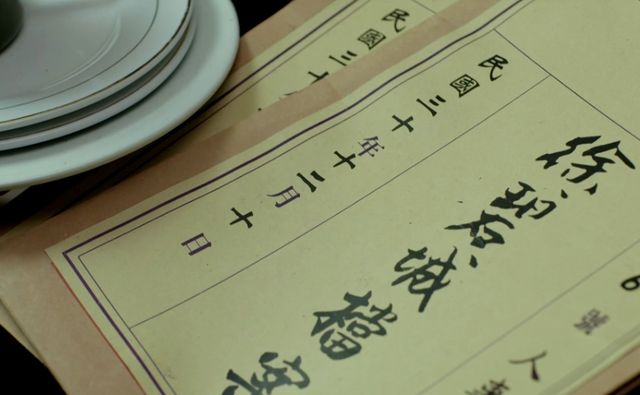 號 人事
徐碧城檔案
民國三十年十二月十日
民國三十